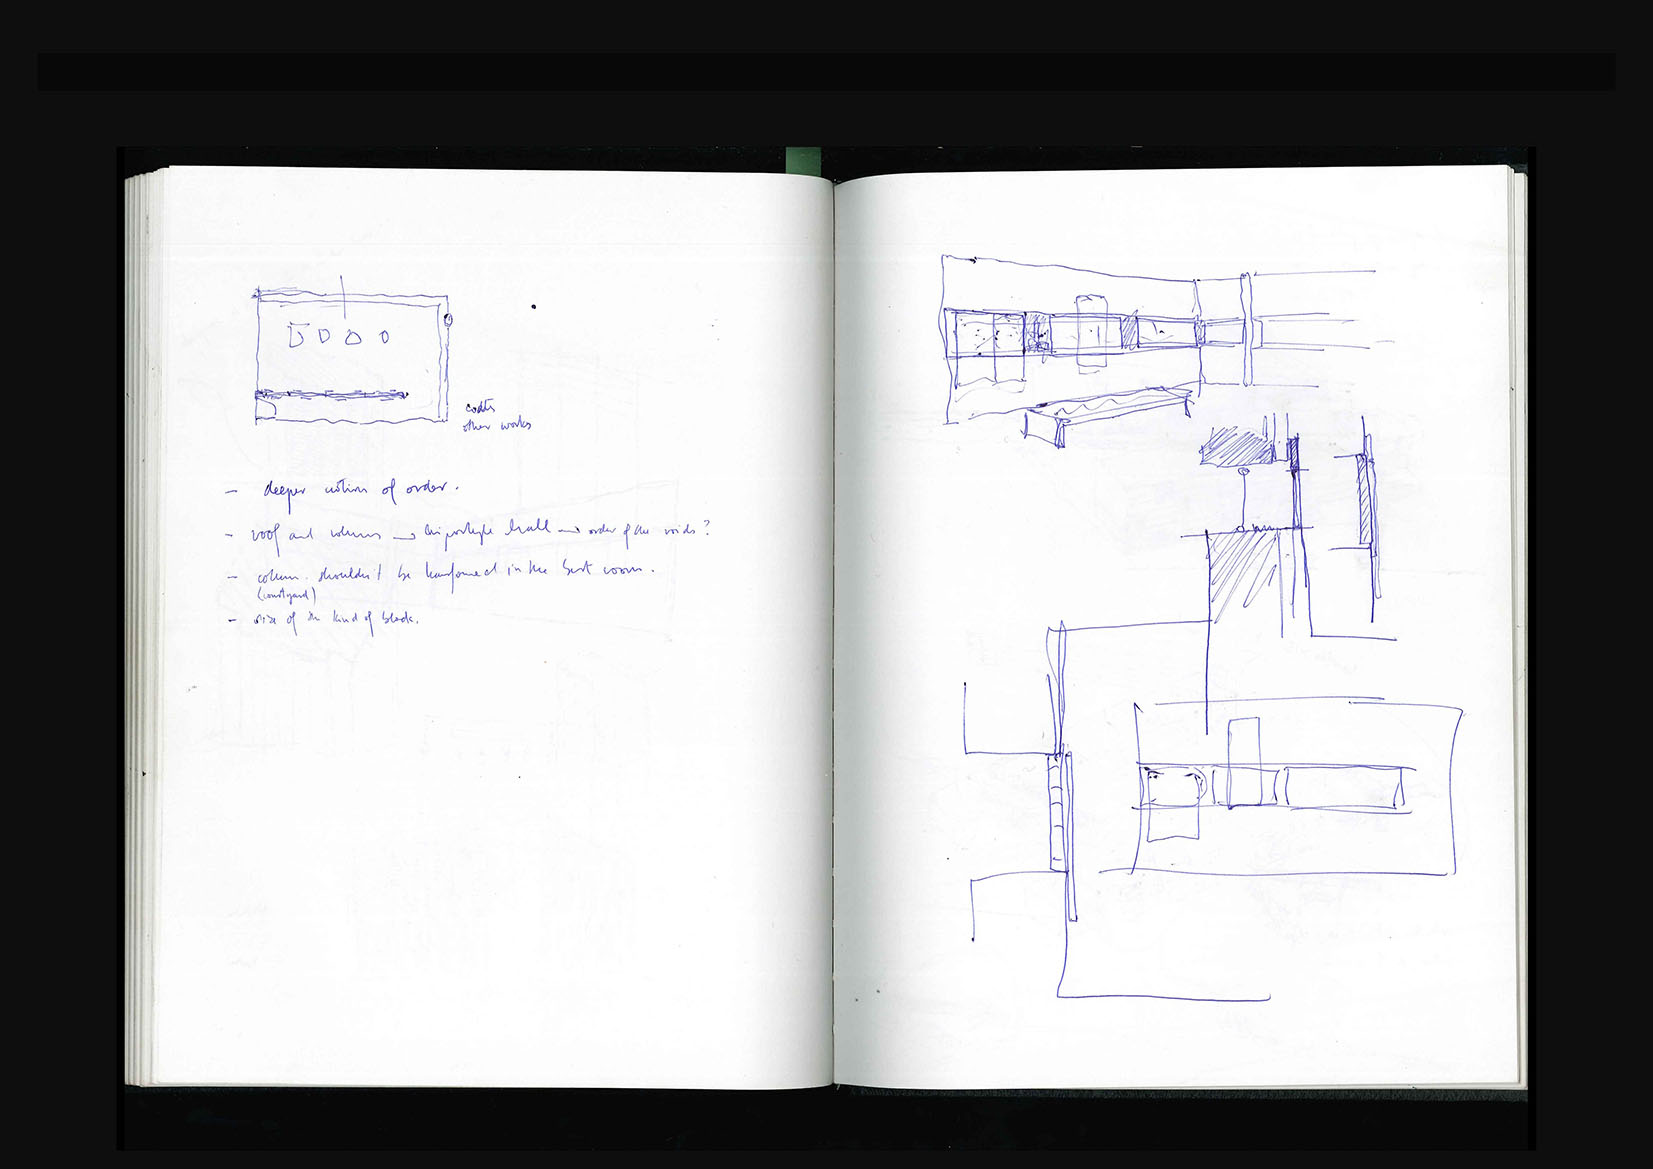 other works
- deeper notion of order.
- roof and columns → hipostyle hall → order of the voids?
- column. shouldn't be transformed in the best room.
(courtyard)
- size of the kind of block.